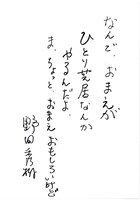 なんで、おまえが
ひとり芝居なんか
やるんだよ。
ま、ちょっと、おまえおもしろいけど
野田秀樹